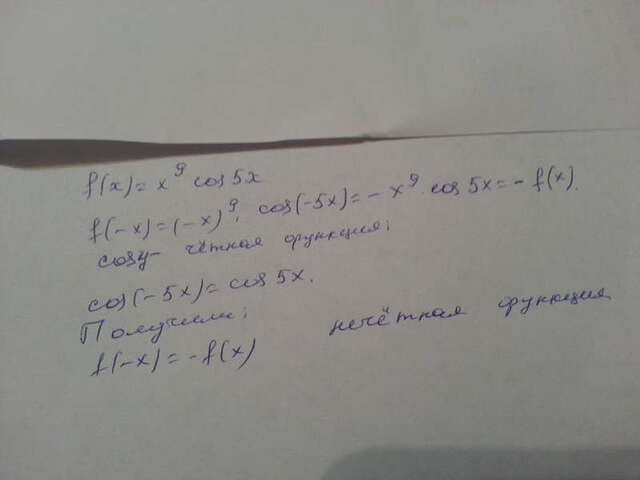 f(x)=x⁹ cos5x
f(-x)=(-x)⁹. cos(-5x)=-x⁹.cos5x=-f(x).
cosy- чётная функция;
cos(-5x)=cos5x.
Получили;
нечётная функция
f(-x)=-f(x)